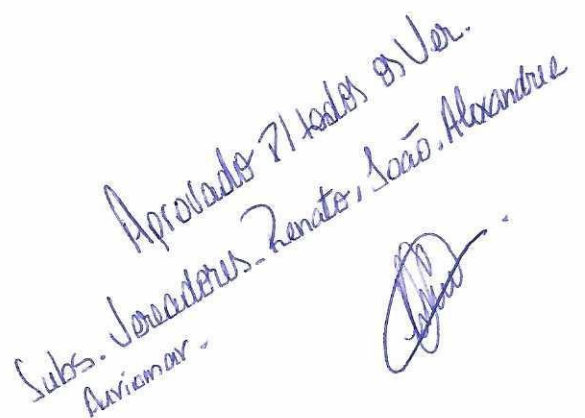 Aprovado P/ todos os Ver.
Subs. Vereadores - Renato, João, Alexandre
Auriomar.